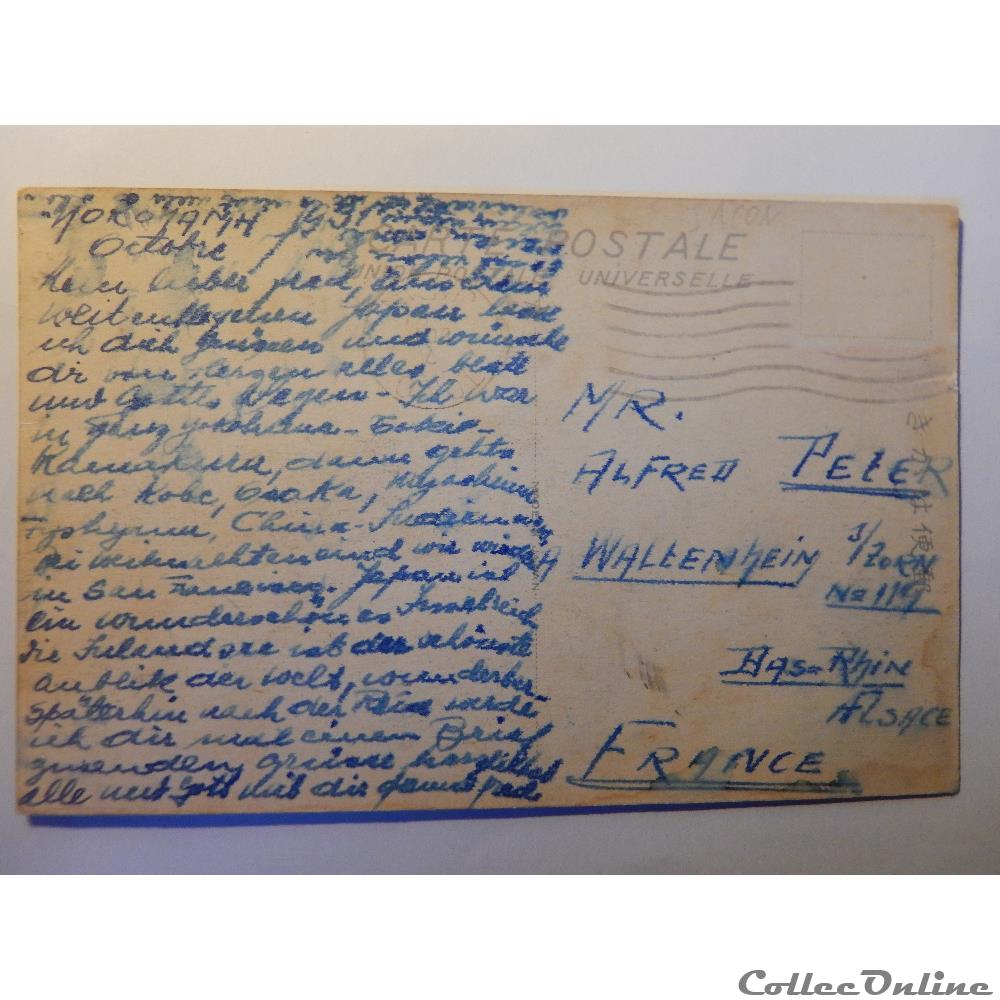 YOKOHAMA 1931
Octobre
CARTE POSTALE
UNION POSTALE UNIVERSELLE
Mein lieber Fred, aus dem
weit entlegenen Japan lass
ich dich grüssen und wünsche
dir von Herzen alles beste
und Gottes Segen - Ich war
in ganz Yokohama - Tokio -
Kamakura, dann gehts
nach Kobe, Osaka,
China -
bei weihnachten sind wir wieder
in San Francisco. Japan ist
ein wunderschönes Inselreich
die Inlandsee ist der schönste
anblick der welt, wunderbar
späterhin nach der Reise werde
ich dir mal einen Brief
zusenden, grüsse herzlichst
alle mit Gott mit dir
MR.
ALFRED PETER
A WALTENHEIN S/ZORN
No 119
BAS-RHIN
ALSACE
FRANCE
きがは便郵
CollecOnline